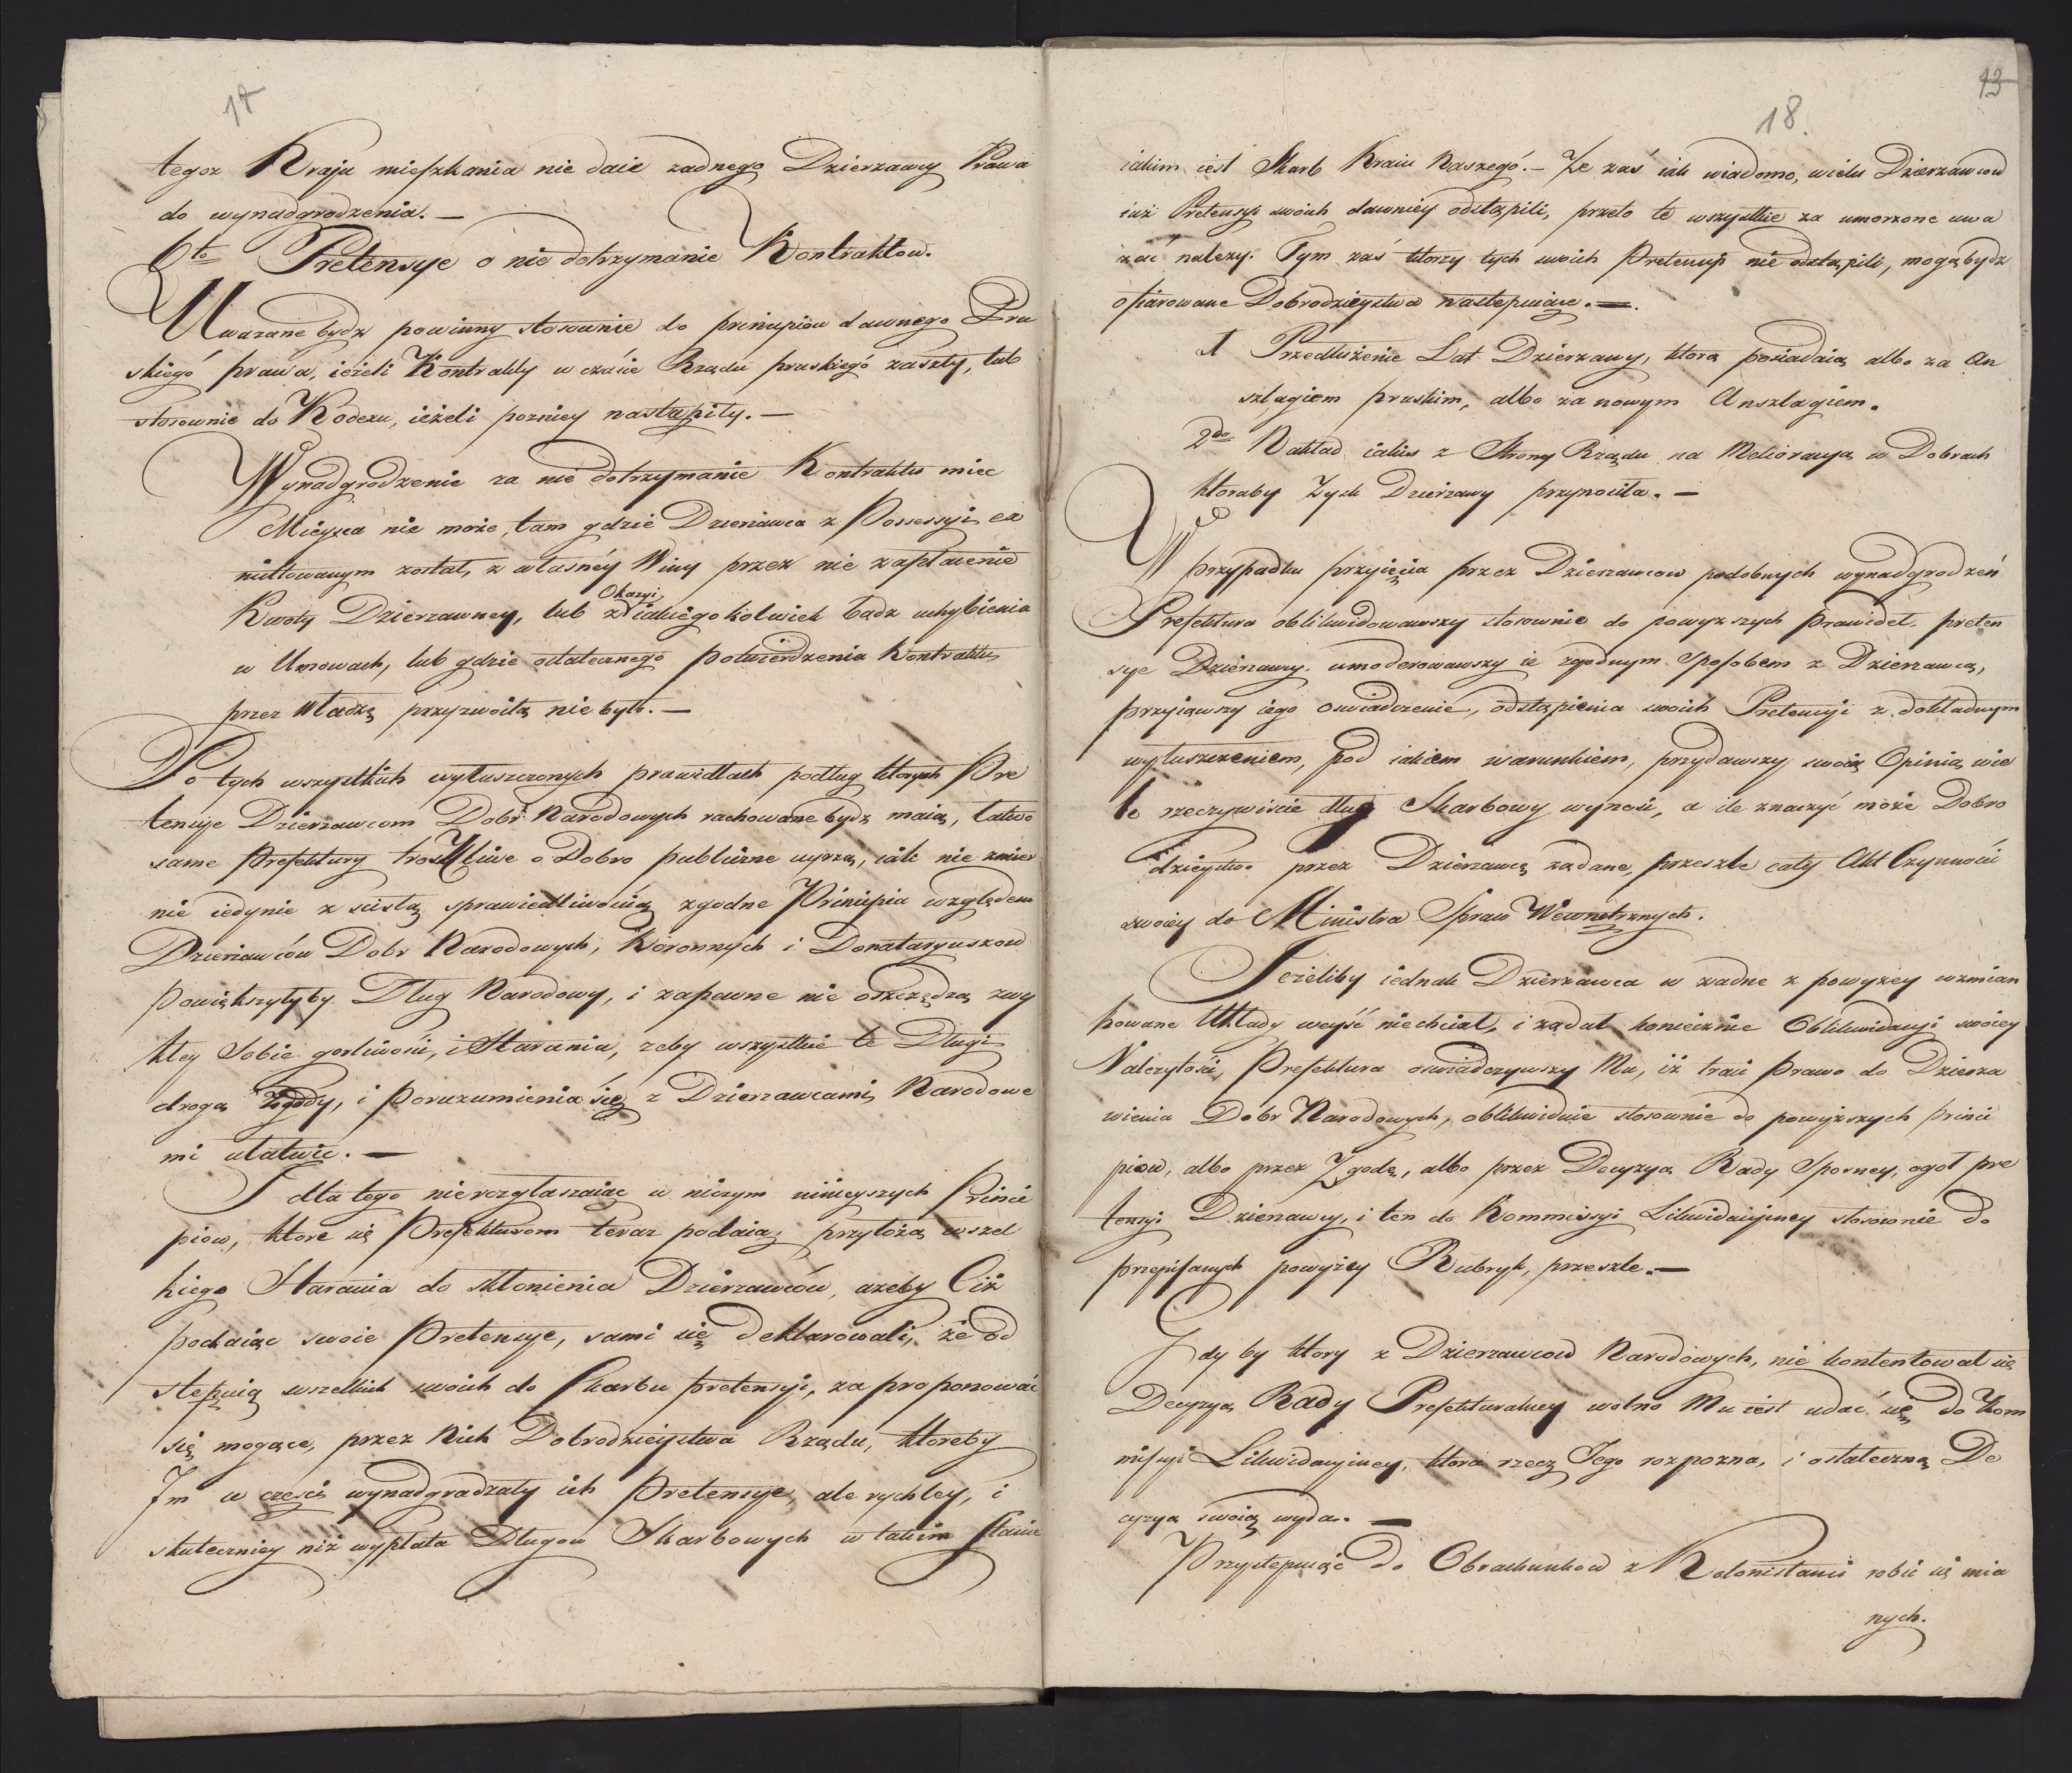 17
tegoz Kraju mieszkania nie daie zadnego Dzierzawcy Prawa
do wynadgrodzenia. —
6to Pretensye o nie dotrzymanie Kontraktow.
Uwazane bydz powinny stosownie do principiow dawnego Pru
skiego prawa, iezeli Kontrakty w czasie Rządu pruskiego zaszły, lub
stosownie do Kodexu, ieżeli pozniey nastąpiły. —
Wynadgrodzenie za nie dotrzymanie Kontraktu miec
Mieysca nie może, tam gdzie Dzierżawca z Possessyi ex
mittowanym został, z własnéy Winy przez nie zapłacenie
Okazyi
Kwoty Dzierzawney, lub z iakiegokolwiek bądz uchybienia
w Umowach, lub gdzie ostatecznego potwierdzenia Kontraktu
przez Władzę przyzwoitą nie było. —
Po tych wszystkich wyłuszczonych prawidłach podług ktorych Pre
tensye Dzierzawcom Dobr Narodowych rachowane bydz maią, łatwo
same Prefektury troskliwe o Dobro publiczne uyrzą, iak nie zmier
nie iedynie z scisłą sprawiedliwością zgodne Principia względem
Dzierzawców Dobr Narodowych, Koronnych i Donataryuszow
powiększyłyby Dług Narodowy, i zapewne nie oszczędzą zwy
kłey Sobie gorliwości, i Starania, zeby wszystkie te Długi
drogą Zgody, i porozumienia się z Dzierzawcami Narodowe
mi ułatwic. —
I dla tego nierozgłaszaiąc w niczym ninieyszych Princi
piow, ktore się Prefekturom teraz podaią, przyłożą wszel
kiego Starania do skłonienia Dzierzawców, azeby Ciż
podaiąc swoie Pretensye, sami się deklarowali, że od
stępuią wszelkich swoich do Skarbu pretensyi, za proponować
się mogące, przez Nich Dobrodzieystwa Rządu, ktoreby
Im w części wynadgradzały ich Pretensye, ale rychley, i
skuteczniey niż wypłata Długow Skarbowych w takim stanie
13
18.
iakim iest Skarb Kraiu Naszego. — Ze zaś iak wiadomo, wielu Dzierzawcow
iuż Pretensyi swoich dawniey odstąpili, przeto te wszystkie za umorzone uwa
zać nalezy. Tym zaś ktorzy tych swoich Pretensyi nie odstąpili, mogą bydz
ofiarowane Dobrodzieystwa następuiące. —
1 Przedłużenie Lat Dzierzawy, ktorą posiadaią albo za An
szlagiem pruskim, albo za nowym Anszlagiem.
2do Nakład iakis z Strony Rządu na Melioracyą w Dobrach
ktoraby Zysk Dzierzawcy przynosiła. —
W przypadku przyięcia przez Dzierzawcow podobnych wynadgrodzeń
Prefektura oblikwidowawszy stosownie do powyzszych prawideł preten
sye Dzierzawcy, umoderowawszy ie zgodnym sposobem z Dzierzawcą,
przyiąwszy iego oswiadczenie, odstąpienia swoich Pretensyi z dokładnym
wyłuszczeniem, pod iakiem warunkiem, przydawszy swoią Opinią wie
le rzeczywiscie dług Skarbowy wynosi, a ile znaczyć może Dobro
dzieystwo przez Dzierzawcę żądane, przeszle cały Akt Czynności
swoiey do Ministra Spraw Wewnętrznych.
Jezeliby iednak Dzierzawca w zadne z powyzey wzmian
kowane Układy weyść niechciał, i żądał koniecznie Oblikwidacyi swoiey
Nalezytości, Prefektura oswiadczywszy Mu, iż traci Prawo do Dzierza
wienia Dobr Narodowych, oblikwiduie stosownie do powyższych princi
piow, albo przez Zgodę, albo przez Decyzyą Rady Sporney, ogoł pre
tensyi Dzierzawcy, i ten do Kommissyi Likwidacyiney stosownie do
przepisanych powyżey Rubryk, przeszle. —
Gdy by ktory z Dzierzawcow Narodowych, nie kontentował się
Decyzyą Rady Prefekturalney wolno Mu iest udać się do Kom
missyi Likwidacyiney, ktora rzecz Jego rozpozna, i ostateczną De
cyzyą swoią wyda. —
Przystępuiąc do Obrachunkow z Kolonistami robic się mia
nych.